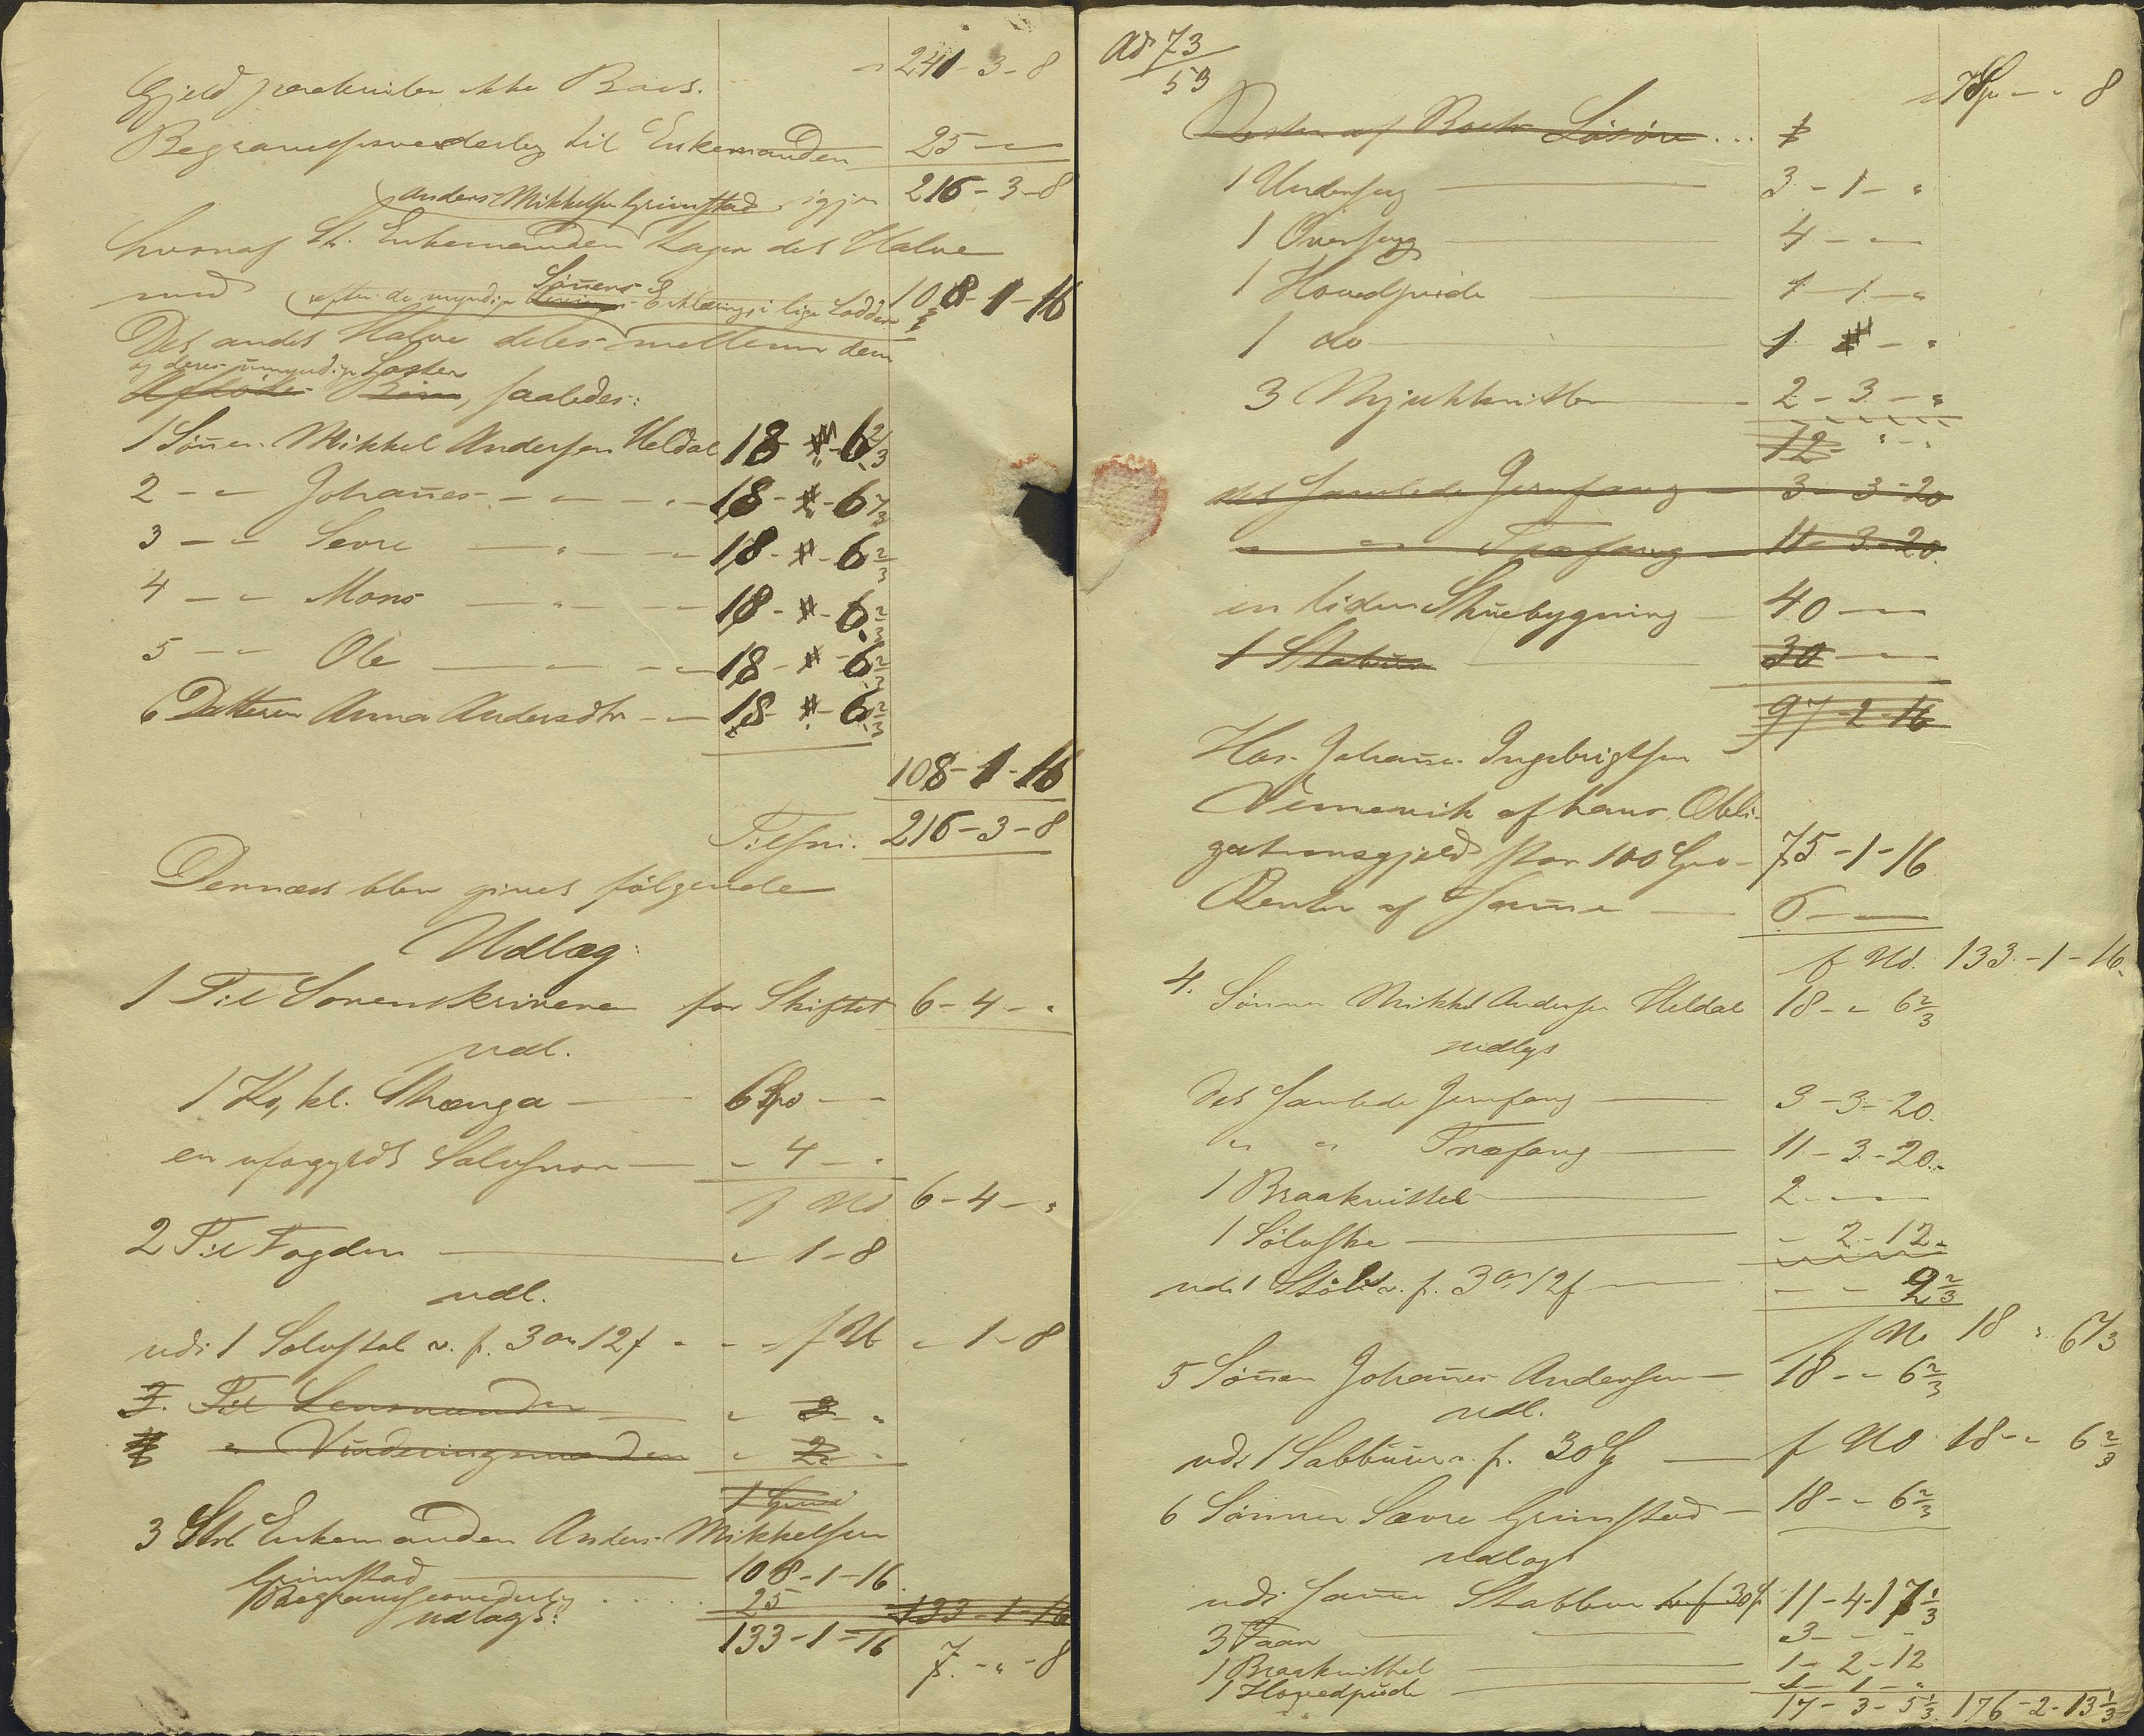 241-3-8
Gjeld paakviler ikke Boet.
Begravelsesvederlag til Enkemanden 25 - -
Anders Mikkelsen Grimstad igjen 216-3-8
hvoraf St. Enkemanden tager det Halve
med 108-1-16
efter de myndige Sönners Erklæring, i lige Lodder
Det andet Halve deles mellem dem
og deres umyndige Söster
Afdödes Börn, saaledes:
1 Sönnen Mikkel Andersen Heldal 18 - " - 6 2/3
2 - " Johañes - " - 18 - " - 6 2/3
3 - " Sevre - " - 18 - " - 6 2/3
4 - " Mons - " - 18 - " - 6 2/3
5 - " Ole - 18 - " - 6 2/3
6 Datteren Anna Andersdtr - 18 - " - 6 2/3
108-1-16
Tilsm. 216-3-8
Dernæst blev givet fölgende
Udlæg:
1 Til Sorenskriveren for Skiftet 6-4-"
udl.
1 Ko, kl. Skrænga 6 Spd - -
en uforgyldt Sölvsnor - 4 - "
f Ud 6-4-"
2 Til Fogden " 1-8
udl.
udi 1 Sölvstob v. f. 3 Ort 12 f - - f Ud " 1-8
3. Til Lensmanden " 3 "
4 " Vurderingsmænden " 2 "
3 Stb Enkemanden Anders Mikkelsen
Grimstad 108-1-16
Begravelsesvederlag 25
udlagt: 133-1-16
133-1-16
7 - " - 8
Ad 73/53
7 Spd - " 8
Resten af Boets Lösöre ...
1 Undersæng 3 - 1 - "
1 Oversæng 4 - -
1 Hovedpude 1 - 1 - "
1 do 1 - "
3 Mjukkvitler 2 - 3 - "
12 " - "
det samlede Jernfang 3 - 3 - 20
" " Træfang 11 - 3 - 20
en liden Stuebygning 40 - -
1 Stabur 30 - -
97-2-16
Hos Johañes Ingebrigtsen
af hans Obli-
gationsgjeld stor 100 Spd 75-1-16
Renter af Samme 6 - -
f Ud. 133-1-16
4. Sönnen Mikkel Andersen Heldal 18 - " 6 2/3
udlagt
det samlede Jernfang 3-3-20.
" " Træfang 11-3-20.
1 Braakvittel 2 - -
1 Sölvske - 2-12
udi 1 Stöb v. f. 3 Ort 12 f - - 9 2/3
f Ud 18 " 6 2/3
5 Söñen Johañes Andersen 18 - " 6 2/3
udl.
udi 1 Stabbur v. f. 30 Spd f Ud 18 - " 6 2/3
6 Sönnen Sævre Grimstad 18 - " 6 2/3
udlagt
udi samme Stabbur v. f. 30 Spd 11-4-17 1/3
3 Faar 3 - - -
1 Braakvittel 1-2-12
1 Hovedpude 1-1-"
17-3-5 1/3 176-2-13 1/3